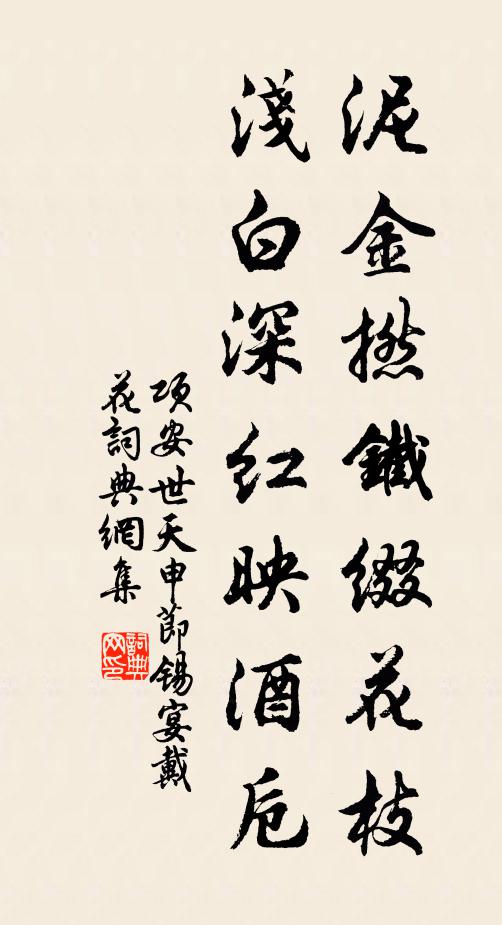 泥金撚鐵綴花枝
淺白深紅映酒卮
項安世天申節錫宴戴
花詞典網集
詞典網印